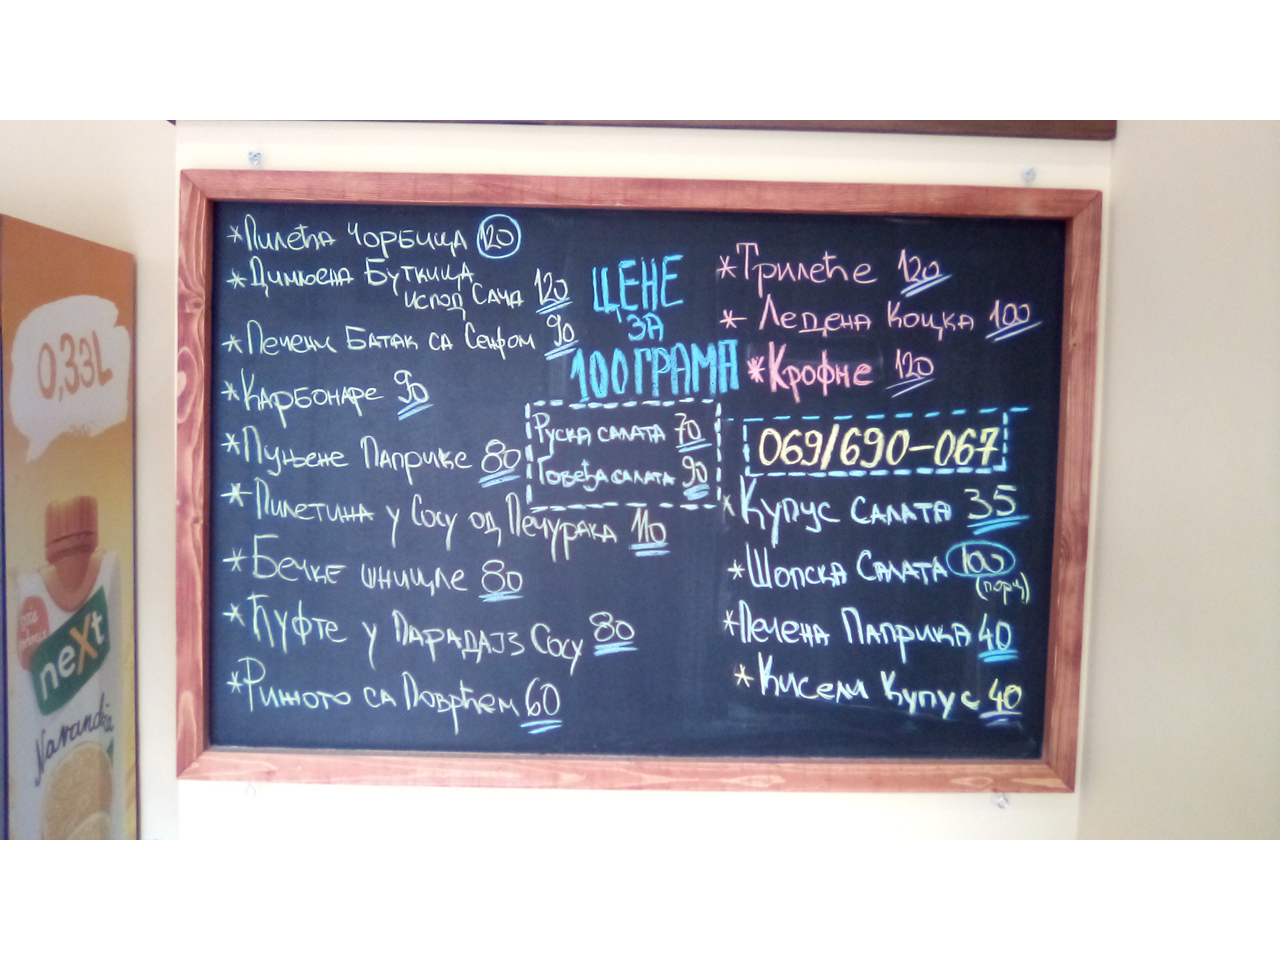 *Пилећа Чорбица 120
*Димљена Буткица
испод Сача 120
*Печени Батак са Сенфом 90
*Карбонаре 90
*Пуњене Паприке 80
*Пилетина у Сосу од Печурака 110
*Бечке шницле 80
*Ћуфте у Парадајз Сосу 80
*Рижото са Поврћем 60
ЦЕНЕ
ЗА
100 ГРАМА
Руска салата 70
Говеђа салата 90
*Трилеће 120
*Ледена Коцка 100
*Крофне 120
069/690-067
*Купус Салата 35
*Шопска Салата 100
(порц)
*Печена Паприка 40
*Кисели Купус 40
0,33L
neXt
Narandža